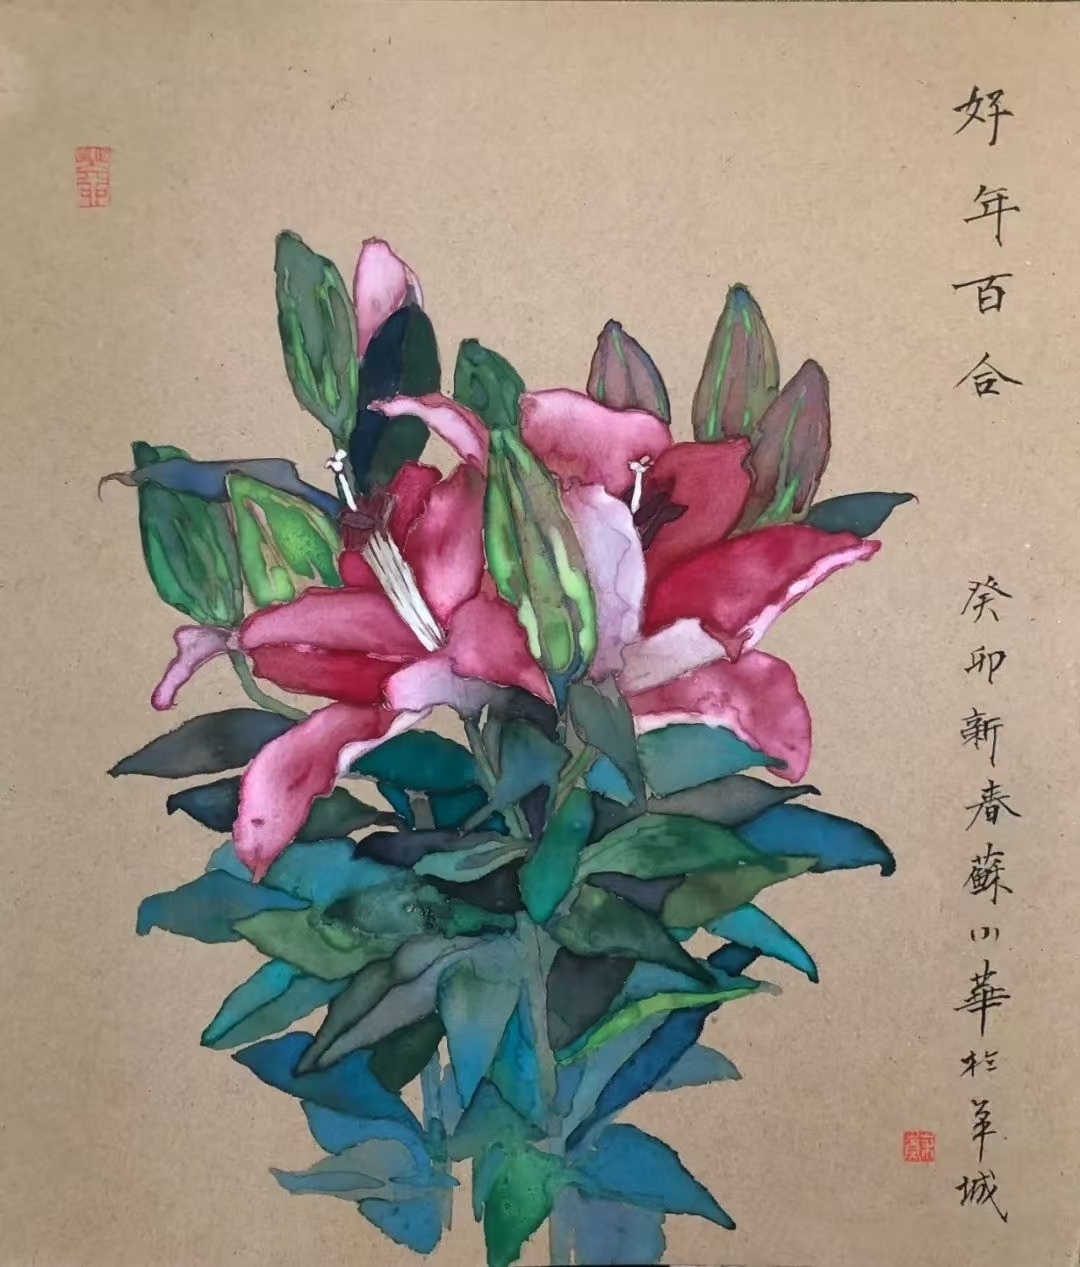 好年百合
癸卯新春蘇小華於羊城